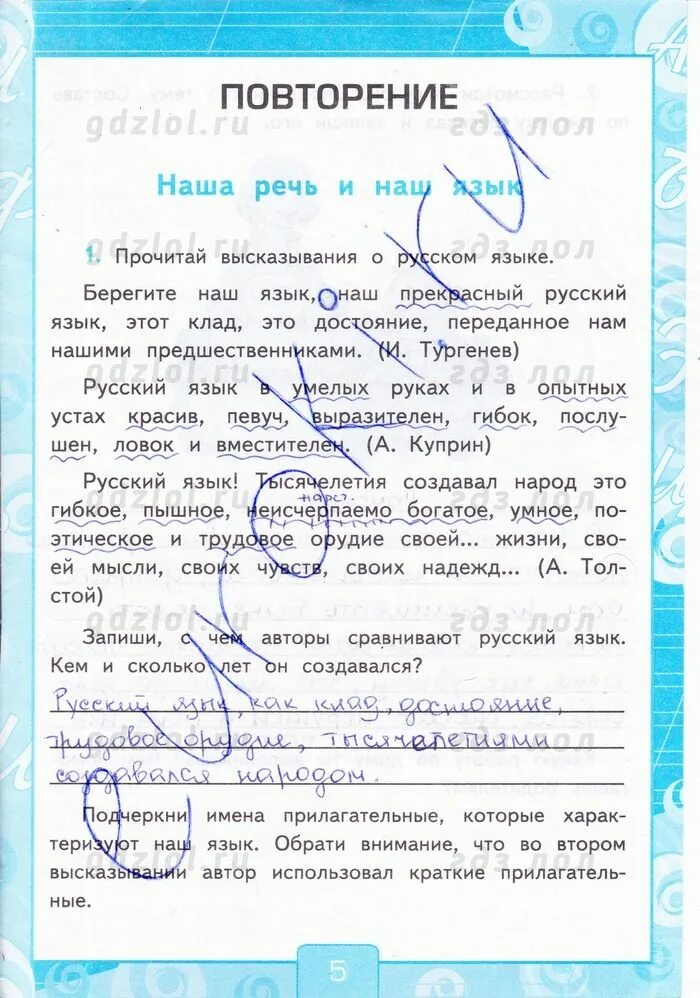 ПОВТОРЕНИЕ
gdzlol.ru гдз лол
Наша речь и наш язык
gdzlol.ru гдз лол
1. Прочитай высказывания о русском языке.
Берегите наш язык, наш прекрасный русский
язык, этот клад, это достояние, переданное нам
нашими предшественниками. (И. Тургенев)
gdzlol.ru гдз лол
Русский язык в умелых руках и в опытных
устах красив, певуч, выразителен, гибок, послу-
шен, ловок и вместителен. (А. Куприн)
Русский язык! Тысячелетия создавал народ это
gdzlol.ru гдз лол
нареч.
гибкое, пышное, неисчерпаемо богатое, умное, по-
этическое и трудовое орудие своей... жизни, сво-
ей мысли, своих чувств, своих надежд... (А. Тол-
стой)
gdzlol.ru гдз лол
Запиши, с чем авторы сравнивают русский язык.
Кем и сколько лет он создавался?
Русский язык, как клад, достояние,
gdzlol.ru гдз лол
трудовое орудие, тысячелетиями
создавался народом.
Подчеркни имена прилагательные, которые харак-
теризуют наш язык. Обрати внимание, что во втором
gdzlol.ru гдз лол
высказывании автор использовал краткие прилагатель-
ные.
5